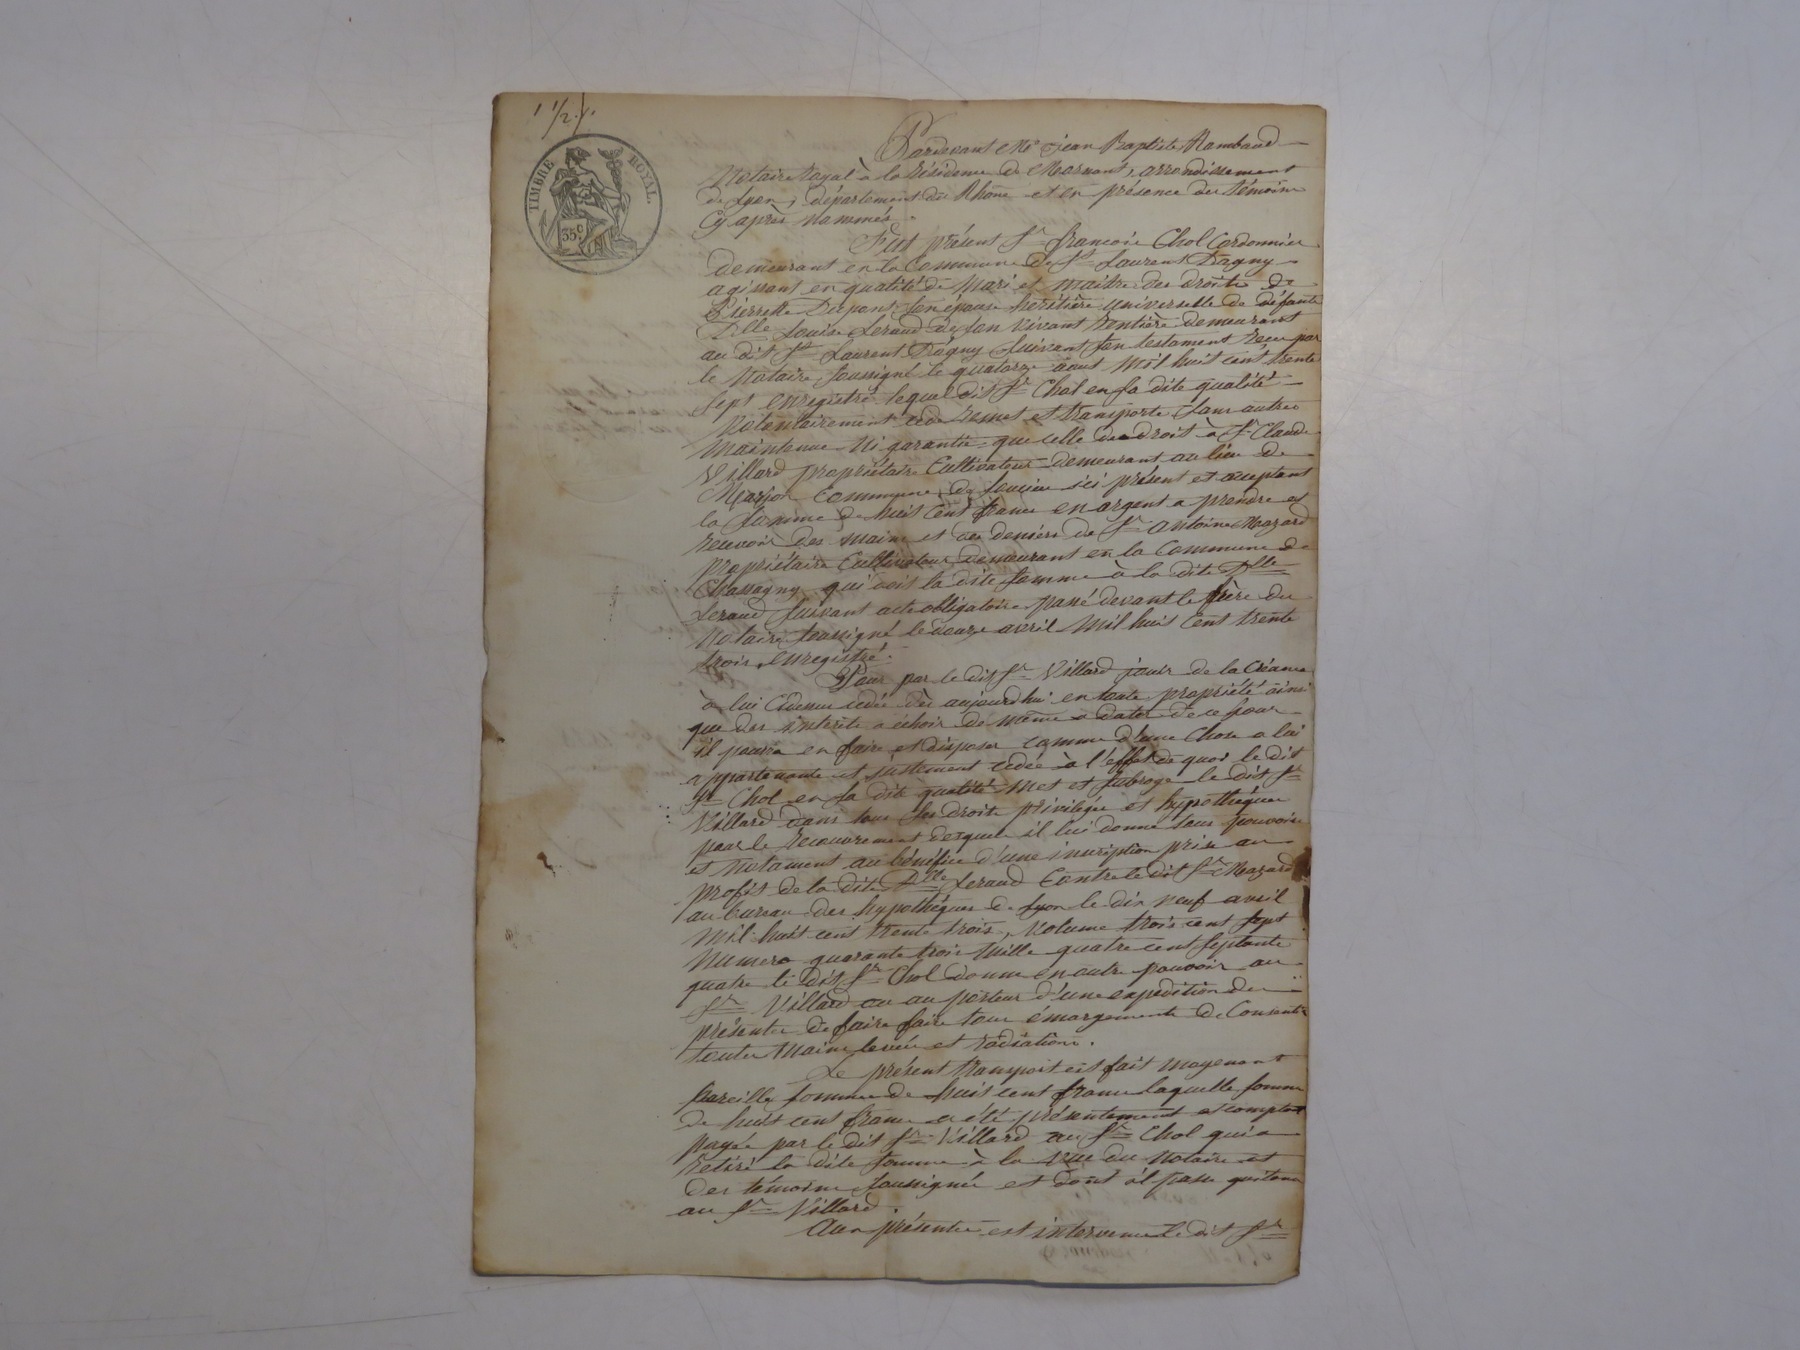 1 1/2 f.
TIMBRE ROYAL.
35 c.
Pardevant Me Jean Baptiste Rambaud
Notaire royal à la résidence de Mornant, arrondissement
de Lyon, département du Rhône et en présence des témoins
cy après nommés.
Fut présent Sr françois Chol Cordonnier
demeurant en la Commune de St Laurent Dagny
agissant en qualité de mari et maitre des droits de
Pierrette Dupont son épouse héritière universelle de défunte
Dlle Louise Leraud de son vivant rentière demeurant
au dit St Laurent Dagny suivant son testament recu par
le Notaire soussigné le quatorze aout mil huit cent trente
sept enregistré lequel dit Sr Chol en sa dite qualité
volontairement cède remet et transporte sans autre
maintenue ni garantie que celle de droit à Sr Claude
Villard propriétaire Cultivateur demeurant au lieu de
Marjon Commune de Soucieu ici présent et acceptant
la somme de huit cent francs en argent a prendre et
recevoir des mains et des deniers de Sr Antoine Mazard
propriétaire Cultivateur demeurant en la Commune de
Chassagny qui doit la dite somme à la dite Dlle
Leraud suivant acte obligatoire passé devant le père du
Notaire soussigné le douze avril mil huit cent trente
trois, enregistré.
Pour par le dit Sr Villard jouir de la Créance
à lui Cidessus cédée dès aujourdhui en toute propriété ainsi
que des interets a échoir de même a dater de ce jour
il pourra en faire et disposer comme d'une chose a lui
appartenante et justement cédée à l'effet de quoi le dit
Sr Chol en sa dite qualité met et subroge le dit Sr
Villard dans tous ses droits privilèges et hypothèques
pour le recouvrement desquels il lui donne tous pouvoirs
et notament au bénéfice d'une inscription prise au
profit de la dite Dlle Leraud Contre le dit Sr Mazard
au bureau des hypothèques de Lyon le dix neuf avril
mil huit cent trente trois, volume trois cent sept
numero quarante trois mille quatre cent septante
quatre le dit Sr Chol donne en outre pouvoir au
Sr Villard ou au porteur d'une expédition des
présentes de faire faire tous émargements de Consentir
toutes mains levées et radiations.
Le présent transport est fait moyenant
pareille somme de huit cent francs laquelle somme
de huit cent francs a été présentement et comptant
payée par le dit Sr Villard au Sr Chol qui a
retiré la dite somme à la vue du notaire et
des témoins soussignés et dont il passe quitance
au Sr Villard.
Aux présentes est intervenu le dit Sr